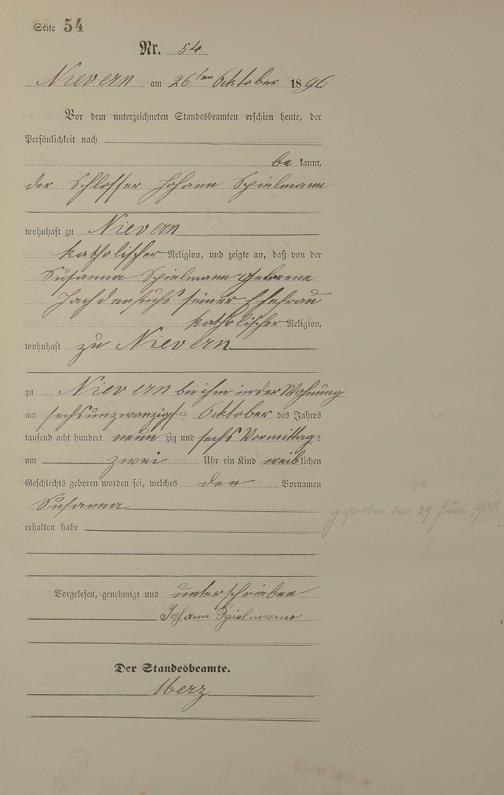 Seite 54
Nr. 54
Nievern am 26ten Oktober 1896
Vor dem unterzeichneten Standesbeamten erschien heute, der
Persönlichkeit nach
be kannt,
der Schlosser Johann Spielmann
wohnhaft zu Nievern
katholischer Religion, und zeigte an, daß von der
Susanna Spielmann geborene
seiner Ehefrau
katholischer Religion,
wohnhaft zu Nievern
zu Nievern bei ihm in der Wohnung
am sechsundzwanzigsten Oktober des Jahres
tausend acht hundert neun zig und sechs Vormittags
um zwei Uhr ein Kind weiblichen
Geschlechts geboren worden sei, welches den Vornamen
Susanna
gestorben den 29 Juni
erhalten habe
Vorgelesen, genehmigt und unterschrieben
Johann Spielmann
Der Standesbeamte.
Merz